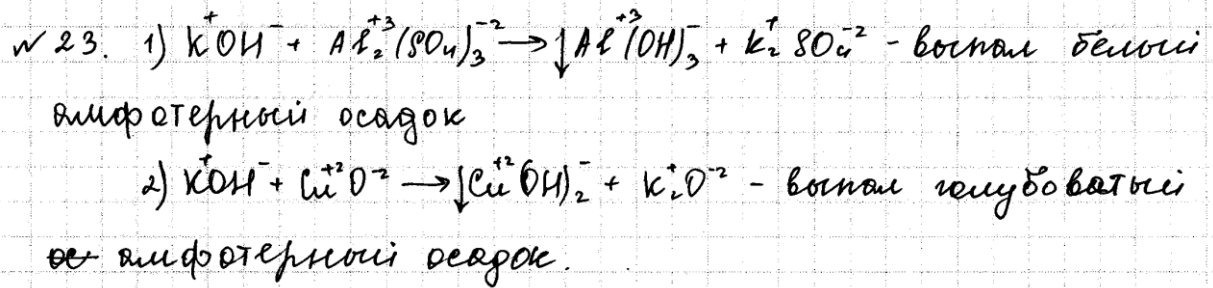 № 23. 1) K⁺OH⁻ + Al₂⁺³(SO₄)₃⁻² → ↓Al⁺³(OH)₃⁻ + K₂⁺SO₄⁻² - выпал белый
амфотерный осадок
2) K⁺OH⁻ + Cu⁺²O⁻² → ↓Cu⁺²(OH)₂⁻ + K₂⁺O⁻² - выпал голубоватый
ос амфотерный осадок.